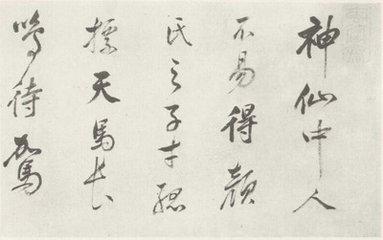 神仙中人
不易得顏
氏之子才孤
標天馬長
鳴待駕